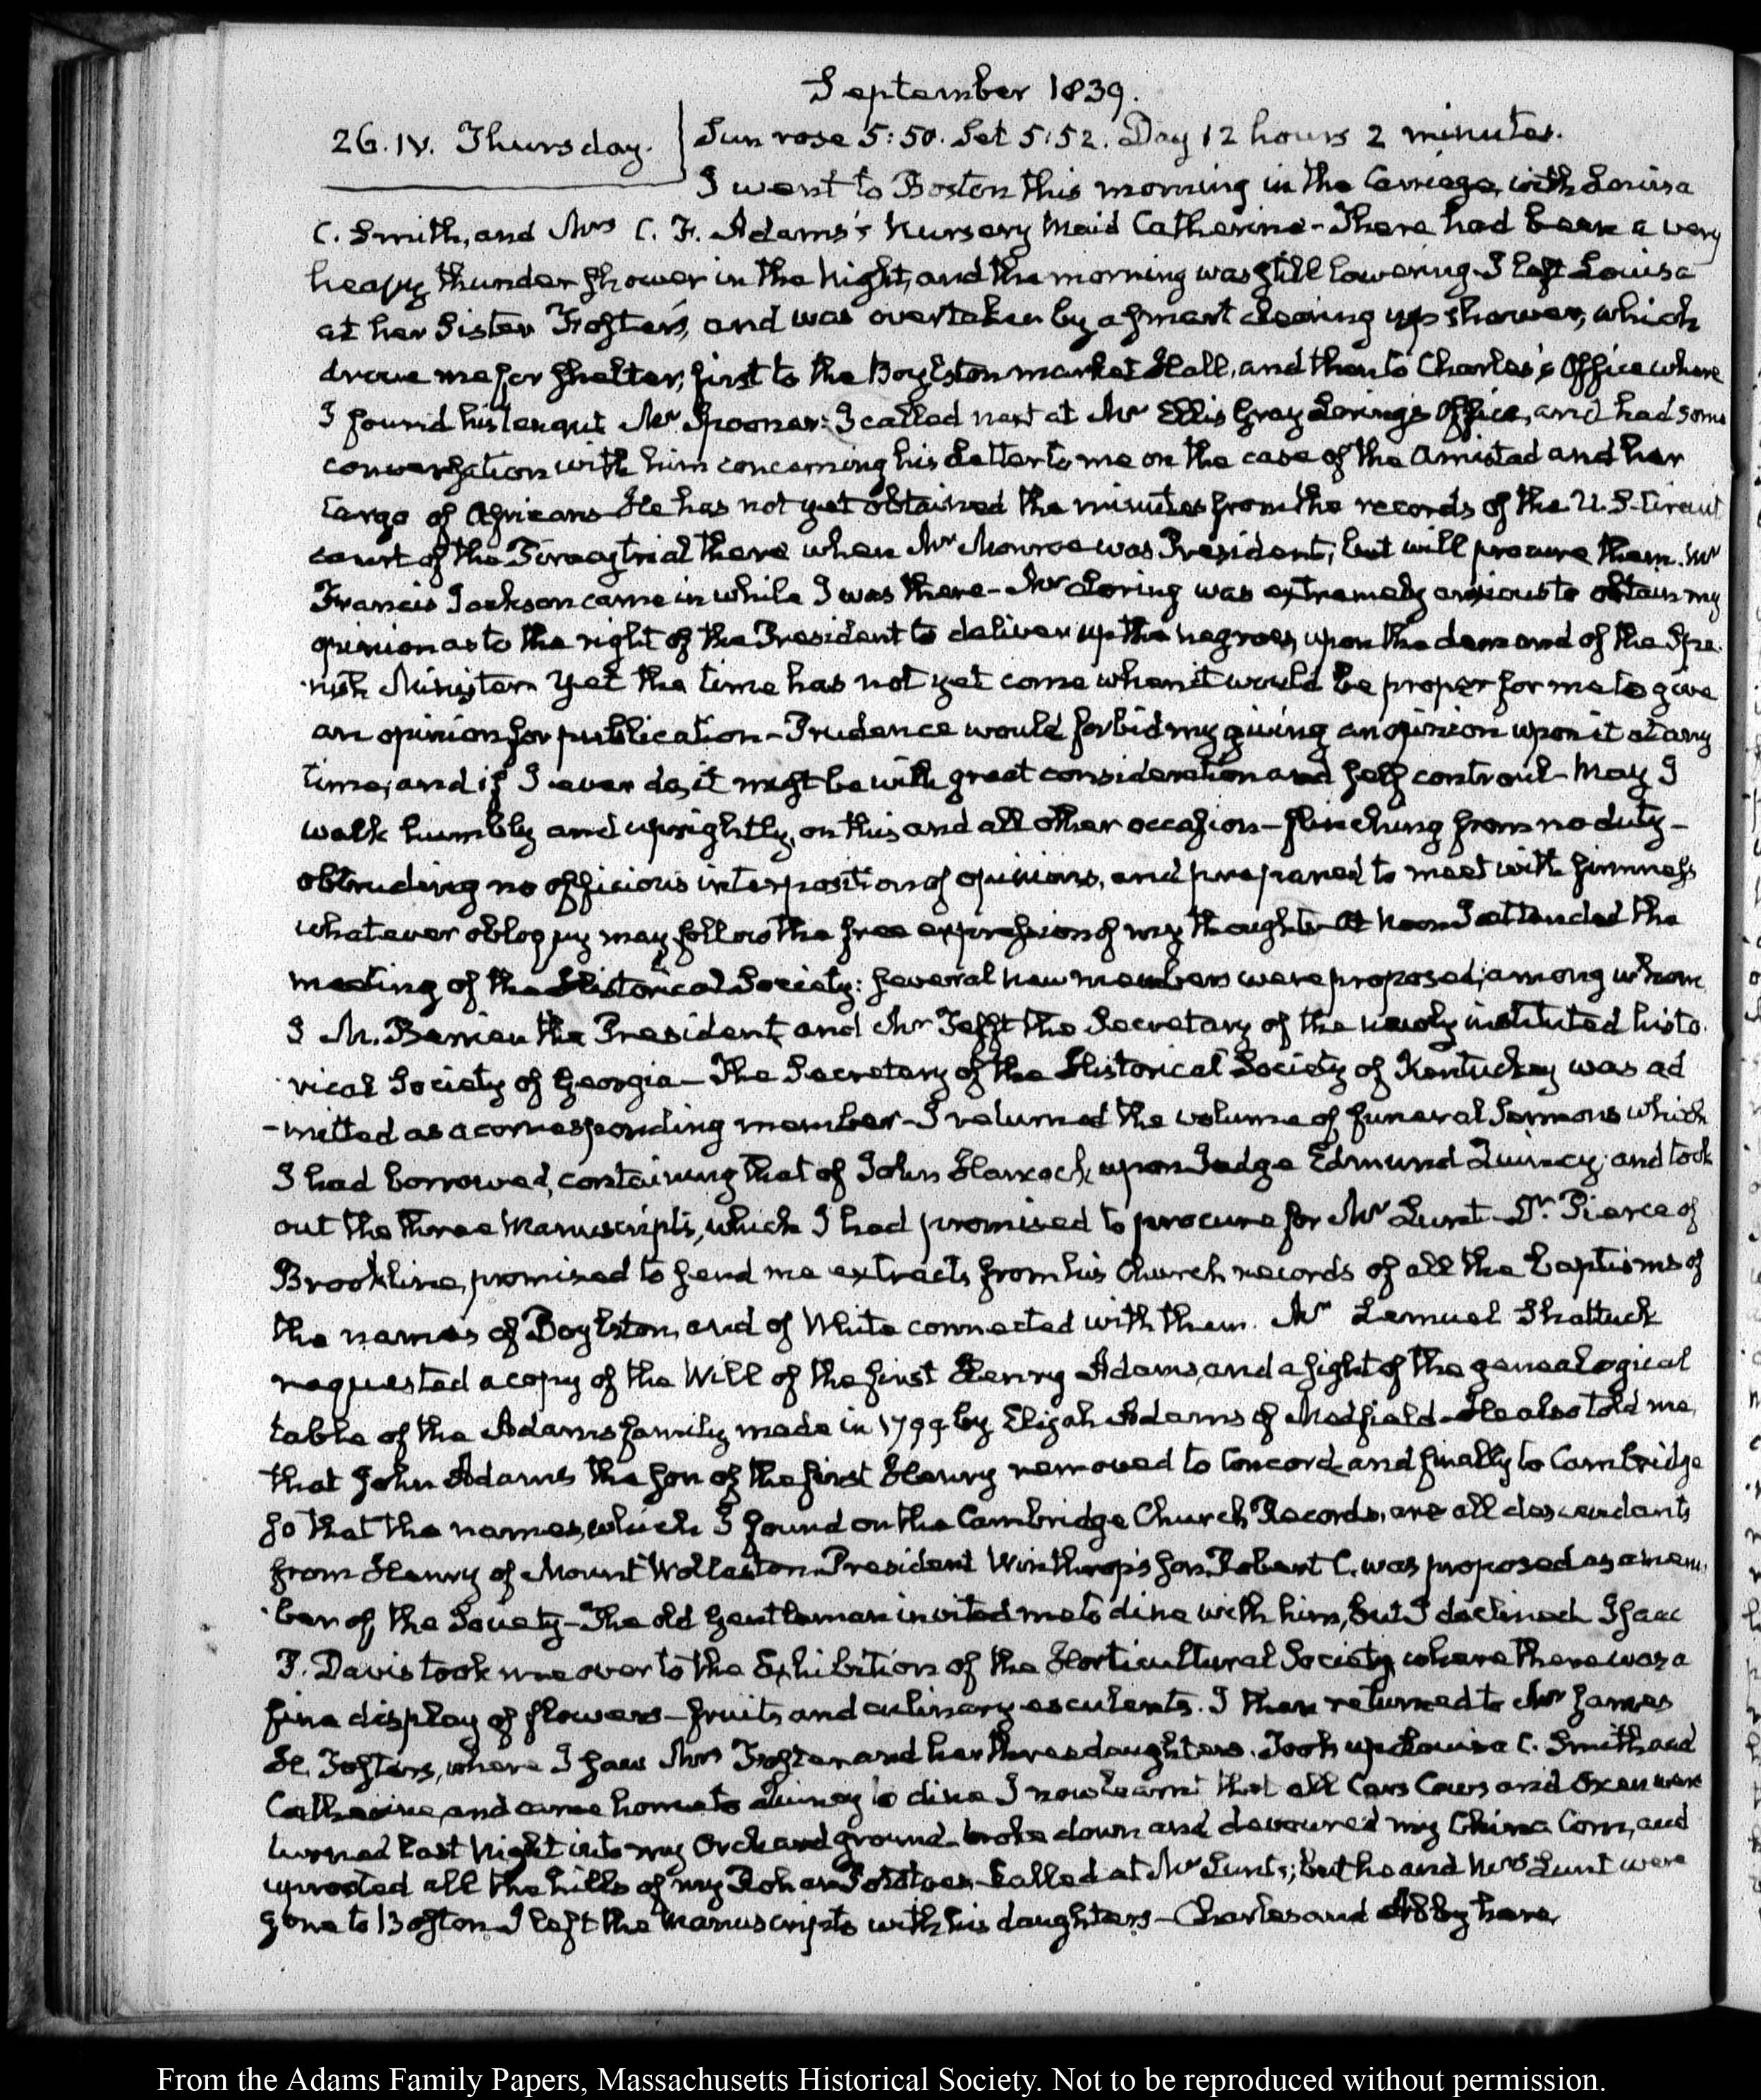 September 1839.
26. IV. Thursday. Sun rose 5:50. Set 5:52. Day 12 hours 2 minutes.
I went to Boston this morning in the Carriage, with Louisa
C. Smith, and Mrs C. F. Adams's Nursery Maid Catherine - There had been a very
heavy thunder shower in the night, and the morning was still lowering. I left Louisa
at her Sister Foster's, and was overtaken by a smart clearing up shower, which
drove me for shelter, first to the Boylston market Hall, and then to Charles's Office where
I found his tenant Mr Spooner: I called next at Mr Ellis Gray Loring's Office, and had some
conversation with him concerning his Letter to me on the case of the Amistad and her
Cargo of Africans He has not yet obtained the minutes from the records of the U.S. Circuit
court of the Piracy trial there when Mr Monroe was President; but will procure them. Mr
Francis Jackson came in while I was there - Mr Loring was extremely anxious to obtain my
opinion as to the right of the President to deliver up the negroes, upon the demand of the Spa-
-nish Minister. Yet the time has not yet come when it would be proper for me to give
an opinion for publication - Prudence would forbid my giving an opinion upon it at any
time, and if I ever do, it must be with great consideration and self controul - May I
walk humbly and uprightly, on this and all other occasion - flinching from no duty -
obtruding no officious interposition of opinions, and prepared to meet with firmness
whatever obloquy may follow the free expression of my thoughts - At Noon I attended the
meeting of the Historical Society: several new members were proposed; among whom
J M. Berrien the President, and Mr Tefft the Secretary of the newly instituted histo-
-rical Society of Georgia - The Secretary of the Historical Society of Kentuckey was ad
-mitted as a corresponding member - I returned the volume of funeral Sermons which
I had borrowed, containing that of John Hancock, upon Judge Edmund Quincy; and took
out the three Manuscripts, which I had promised to procure for Mr Lunt - Dr. Pierce of
Brookline, promised to send me extracts from his Church records of all the baptisms of
the names of Boylston, and of White connected with them. Mr Lemuel Shattuck
requested a copy of the Will of the first Henry Adams, and a sight of the genealogical
table of the Adams family made in 1799 by Elijah Adams of Medfield - He also told me,
that John Adams the son of the first Henry removed to Concord, and finally to Cambridge
so that the names, which I found on the Cambridge Church Records, are all descendants
from Henry of Mount Wollaston. President Winthrop's son Robert C. was proposed as a mem-
-ber of the Society - The old Gentleman invited me to dine with him, but I declined. Isaac
P. Davis took me over to the Exhibition of the Horticultural Society, where there was a
fine display of flowers - fruits and culinary esculents. I then returned to Mr James
H. Foster's, where I saw Mrs Foster and her three daughters. Took up Louisa C. Smith and
Catherine, and came home to Quincy to dine I now learnt that all Cars Cows and Oxen were
turned last Night into my Orchard ground - broke down and devoured my China Corn, and
uprooted all the hills of my Rohan Potatoes. Called at Mr Lunt's; but he and Mrs Lunt were
gone to Boston - I left the Manuscripts with his daughters - Charles and Abby here,
From the Adams Family Papers, Massachusetts Historical Society. Not to be reproduced without permission.